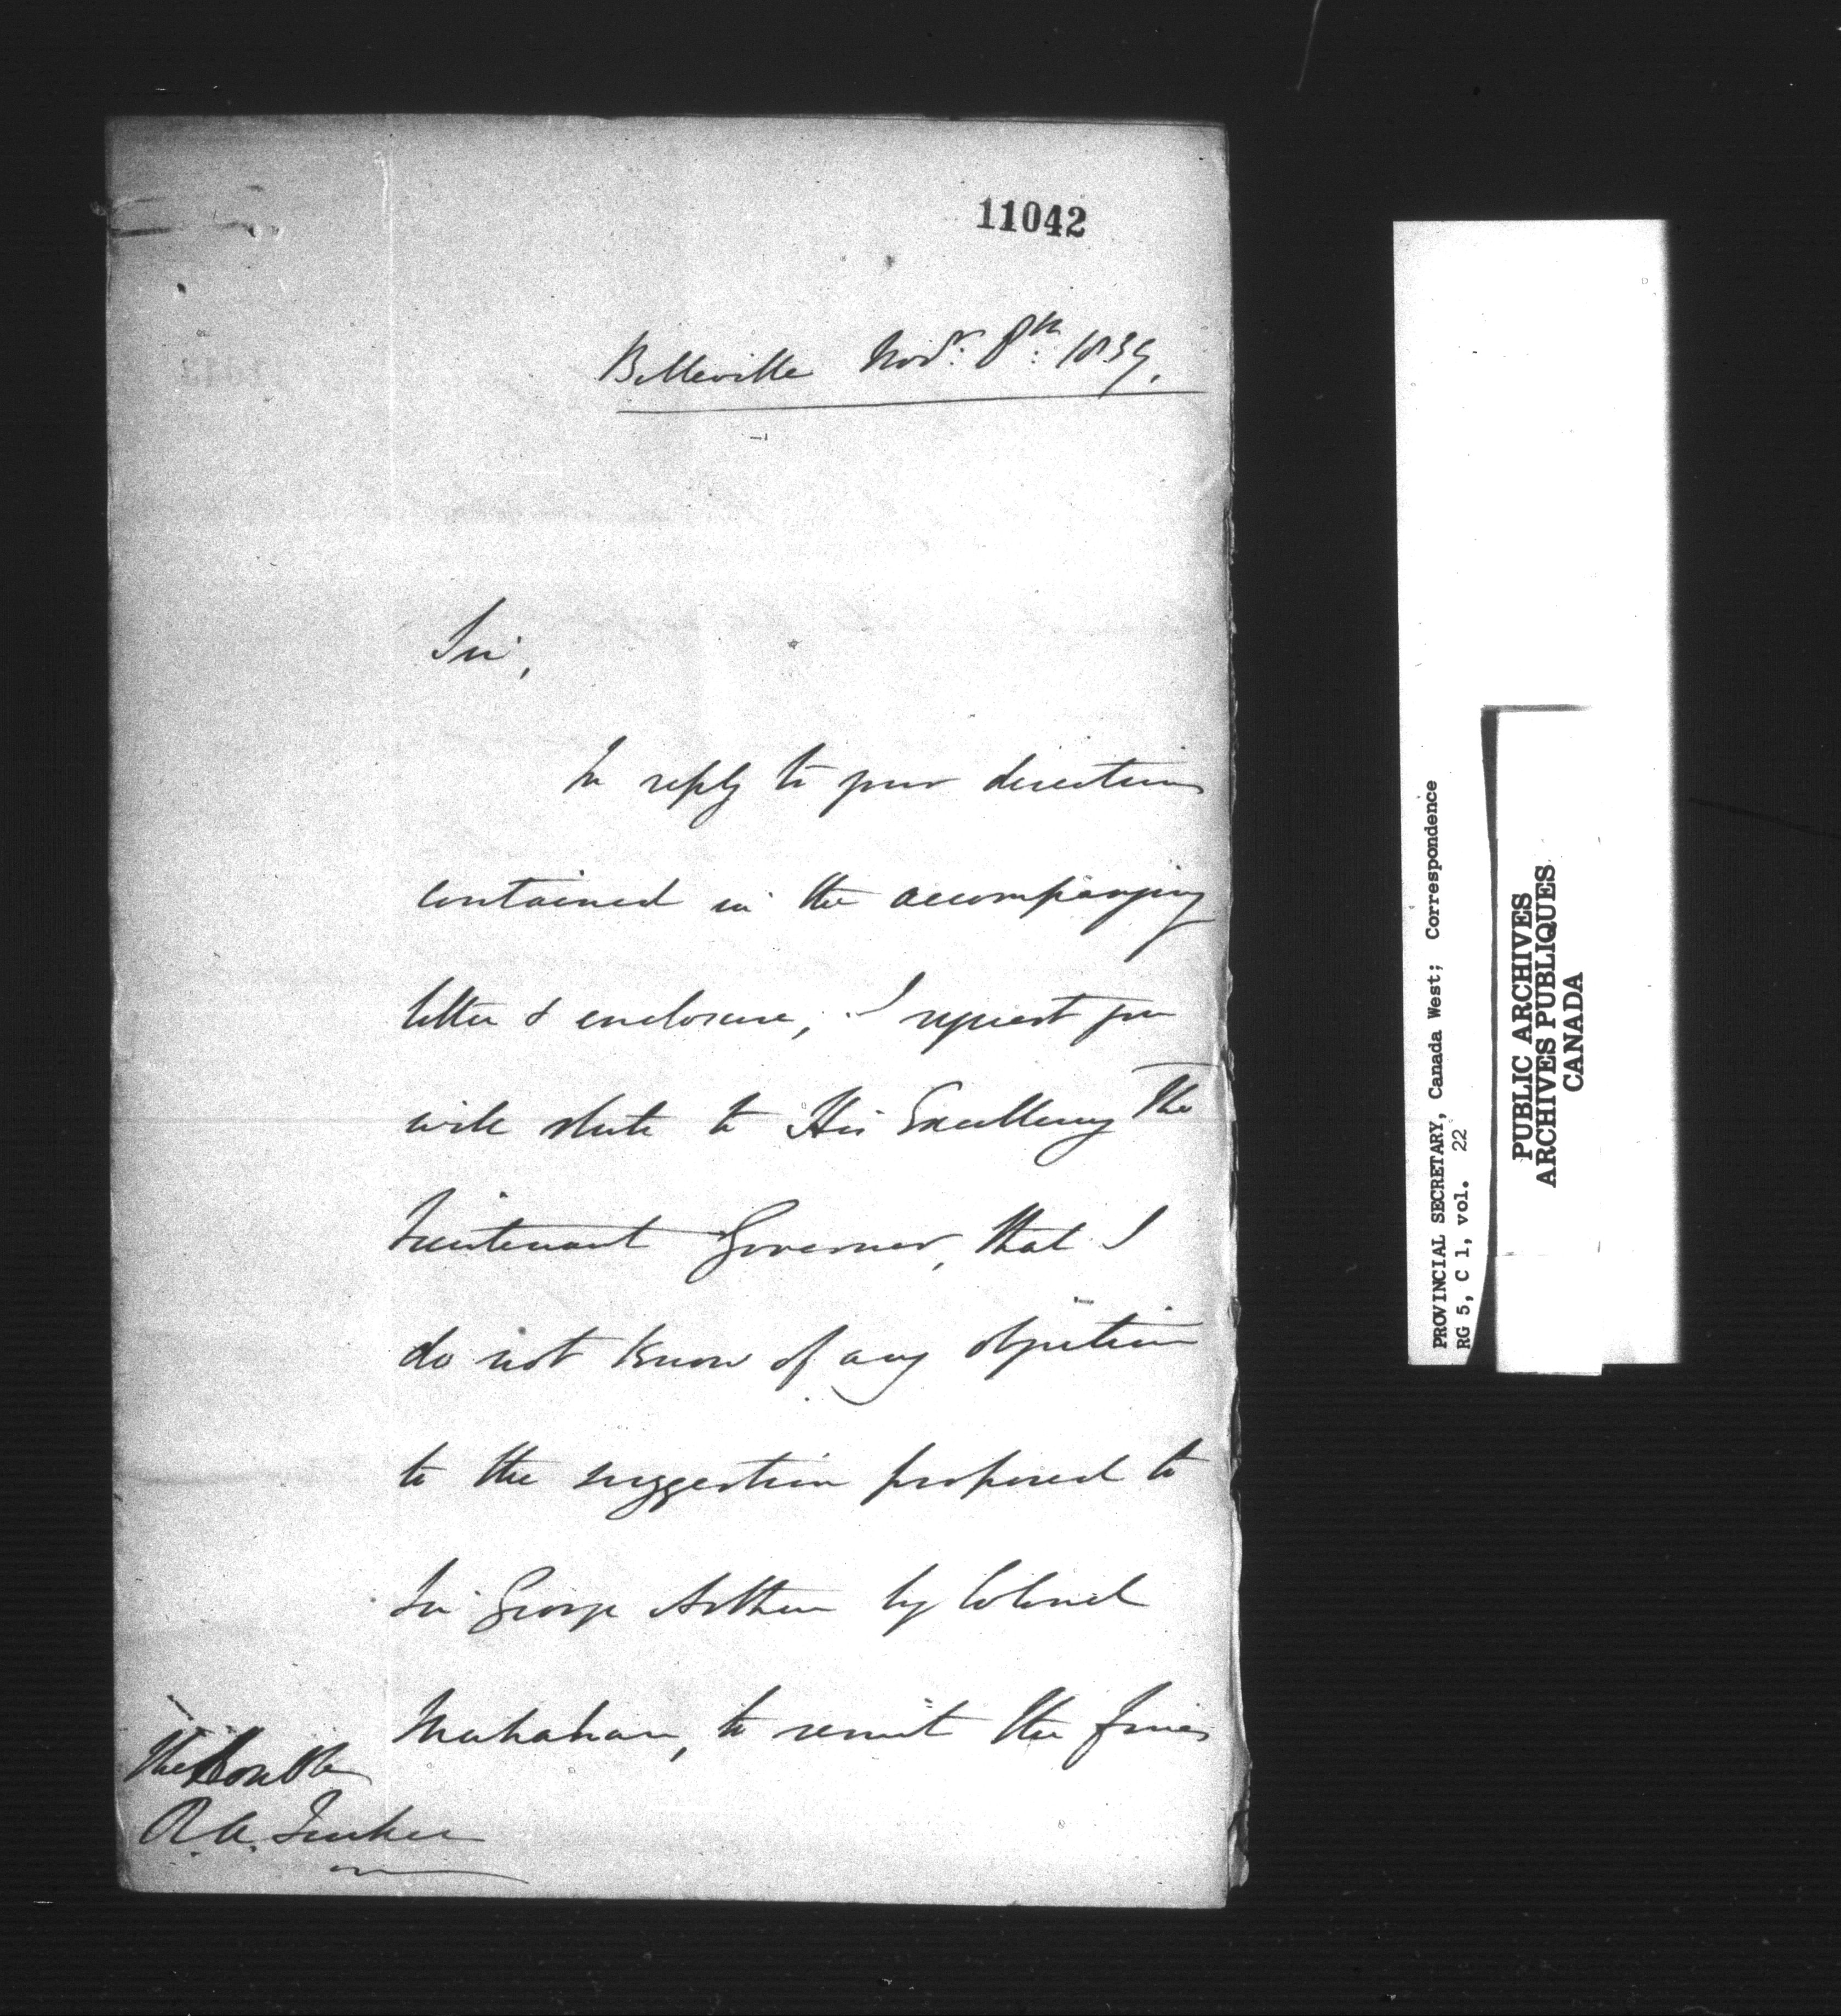 11042
Belleville Novr. 8th. 1839.
Sir,
In reply to your directions
contained in the accompanying
letter & enclosure, I request you
will state to His Excellency The
Lieutenant Governor, that I
do not know of any objection
to the suggestion proposed to
Sir George Arthur by Colonel
to remit the fines
The Honble
R. A. Tucker
PROVINCIAL SECRETARY, Canada West; Correspondence
RG 5, C 1, vol. 22
PUBLIC ARCHIVES
ARCHIVES PUBLIQUES
CANADA